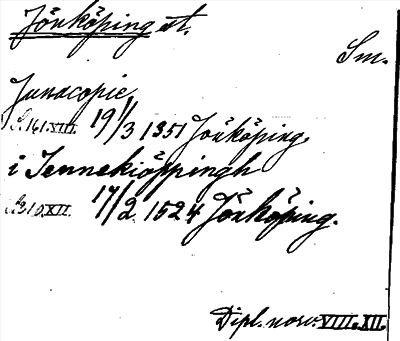 Jönköping st.
Sm.
Junacopie
S. 161. VIII. 19/3 1351 Jönköping.
i Jennekiöppingh
S. 310. XII. 17/2. 1524 Jönköping.
Dipl. norv. VIII. XII.